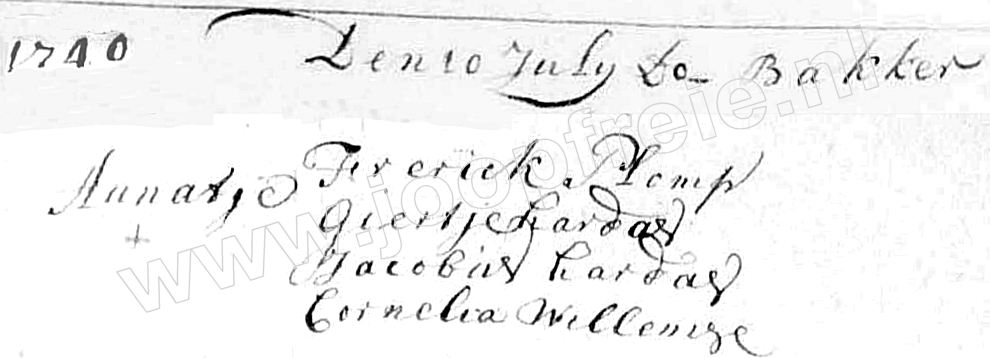 1740 Den 10 July Do Bakker
Annatje Frerick Plomp
Giertje kardas
Jacobus kardas
Cornelia Willemze
www.joopfreie.nl